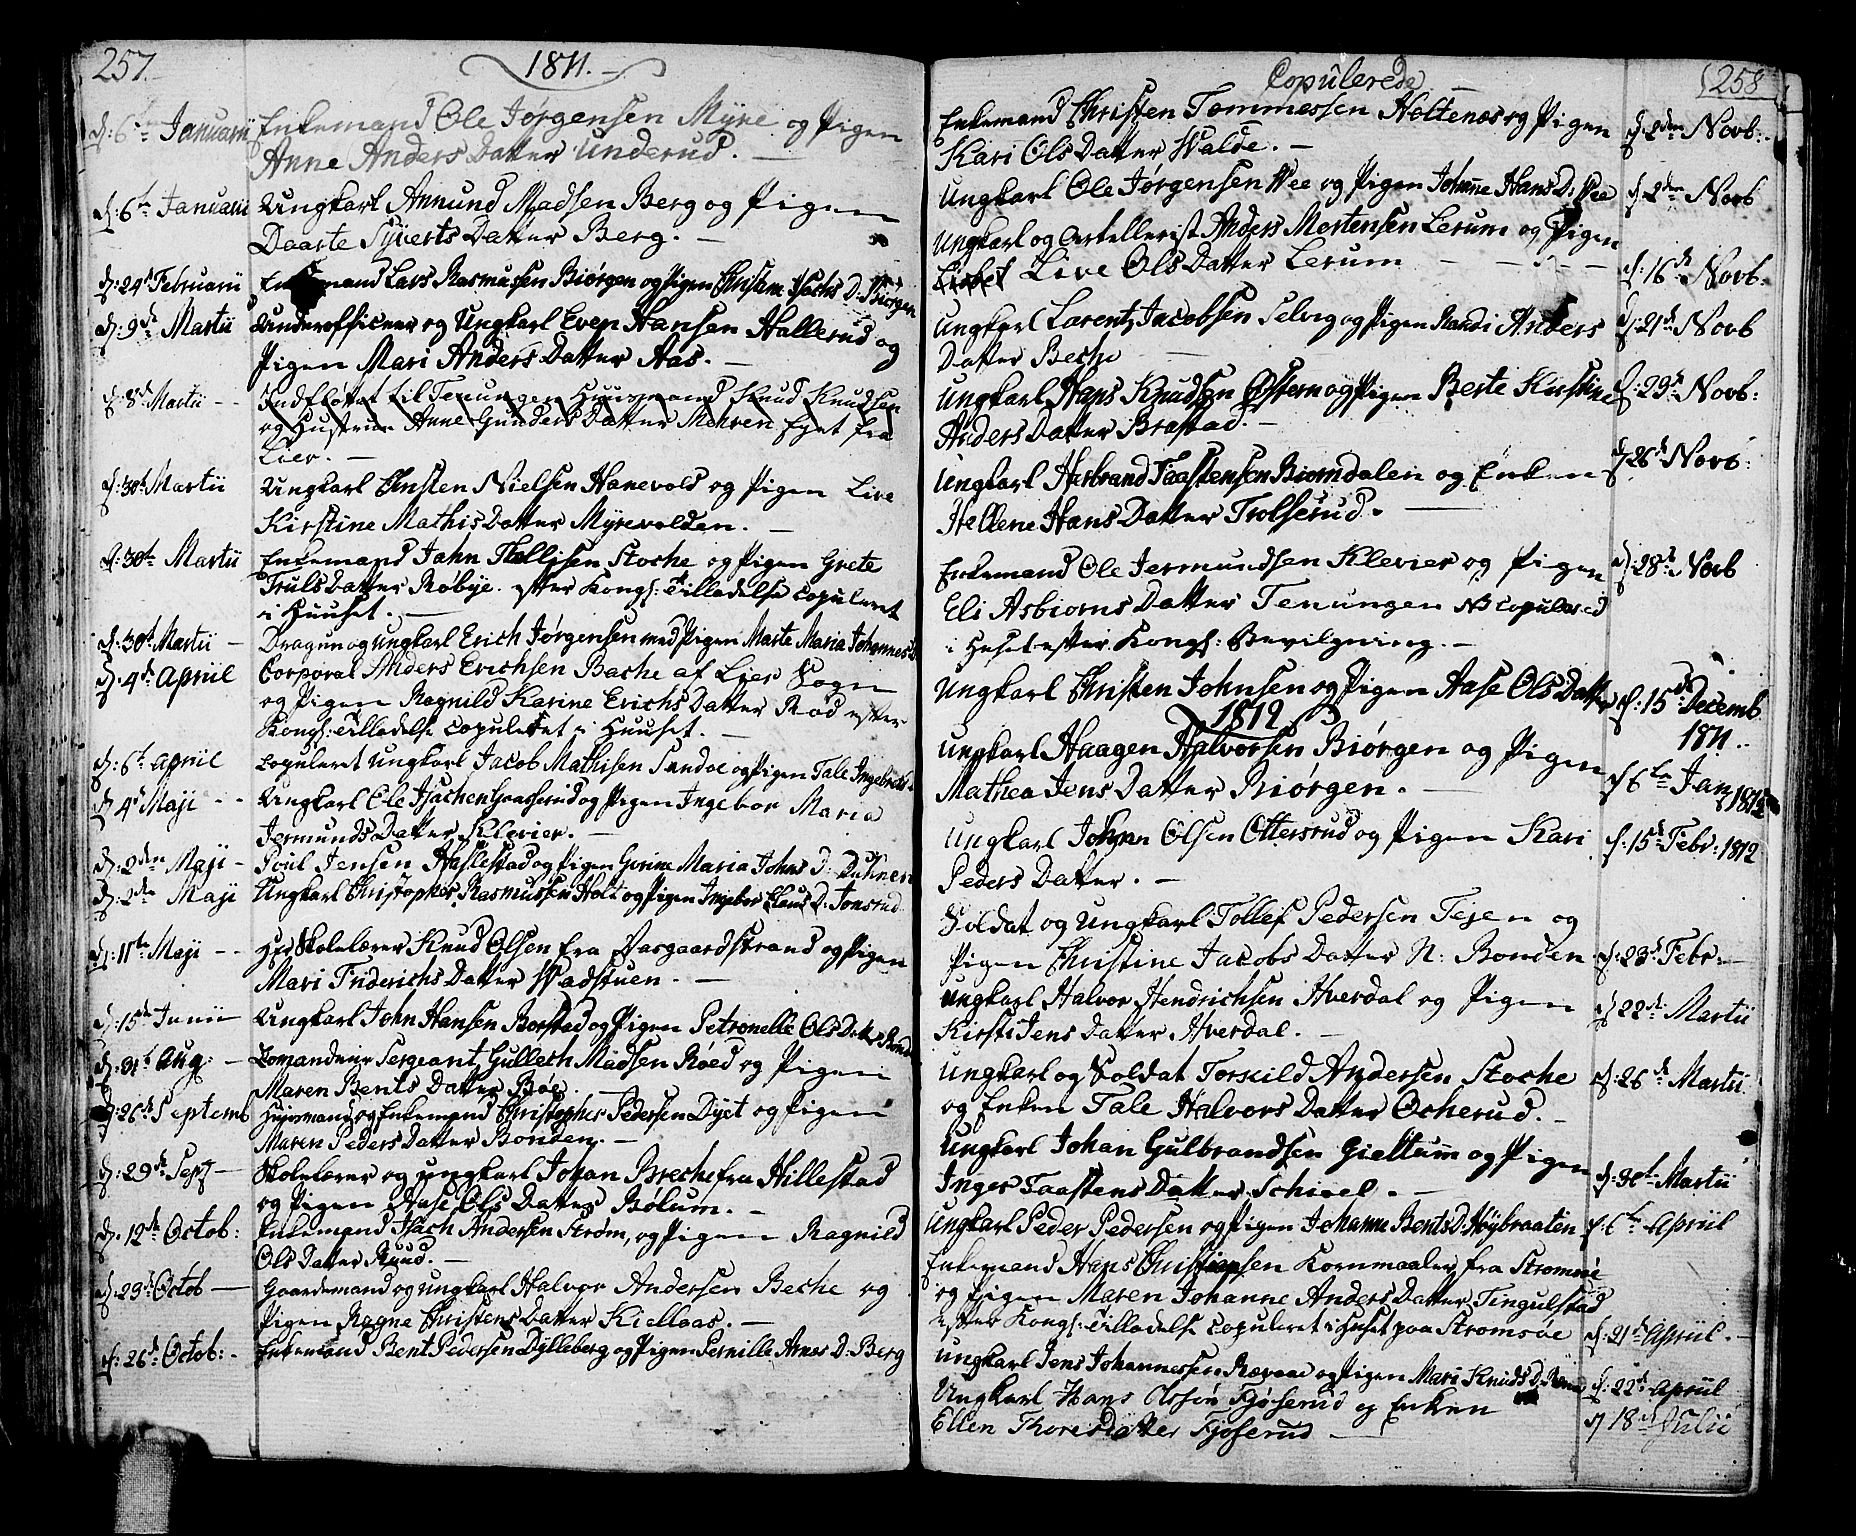 257.
1811.
d: 6te Januarii Enkemand Ole Jørgensen Myre og Pigen
Anne Anders Datter Underud. —
d: 6te Januarii Ungkarl Annund Madsen Berg og Pigen
Daarte Syverts Datter Berg. —
d: 24d Februarii Enkemand Lars Rasmussen Biørgen og Pigen Christine Isachs D: Biørgen
d: 9de Martii Underofficeer og Ungkarl Even Hansen Hallerud og
Pigen Mari Anders Datter Aas. —
d: 8de Martii - - Indfløttet til Tenungen Huusmand Knud Knudsen
og Hustrue Anne Gunders Datter Mehren fra
Lier. —
d: 30t Martii Ungkarl Christen Nielsen Hanevold og Pigen Live
Kirstine Mathis Datter Myrevolden. —
d: 30te Martii Enkemand Jahn Stoche og Pigen Grete
Truls Datter Røbye. efter Kongs: Tilladelse Copuleret
i Huuset. —
d: 30d Martii — Dragun og ungkarl Erich Jørgensen med Pigen Marte Maria Johannes D
d. 4de Apriil Corporal Anders Erichsen Bache af Lier Sogn
og Pigen Ragnild Karine Erichs Datter Rød efter
Kongs: Tilladelse Copuleret i Huuset. —
d: 6te April Copuleret Ungkarl Jacob Mathisen Sandøe og Pigen Tale Ingebrets D.
d: 4de Maji - - Ungkarl Ole Isachsen Graaserud og Pigen Ingebor Maria
Jermunds Datter Klevier. —
d: 2den Maji - Poul Jensen Haslestad og Pigen Gurine Maria Johns D:
d: 2den Maji Ungkarl Christopher Rasmussen Holt og Pigen Ingebor Claus D: Tonsrud
d: 11te Maji - - Hr Skolelærer Knud Olsen fra Aasgaardstrand og Pigen
Mari Friderichs Datter Wadstuen. —
d: 15de Junii Ungkarl John Hansen Borstad og Pigen Petronelle Ols Datter
d: 31t Aug: — Comandeur Sergeant Gulleth Madsen Røed og Pigen
Maren Bents Datter Bøe. —
d: 26de Septemb Huusmand og Enkemand Christopher Pedersen Dyet og Pigen
Maren Peders Datter Bonden. —
d: 29de Sept — Skolelærer og ungkarl Johan Breche fra Hillestad
og Pigen Aase Ols Datter Bølum. —
d. 12de Octob: Enkemand Isach Andersen Strøm, og Pigen Ragnild
Ols Datter Ruud. —
d. 23de Octob — Gaardemand og ungkarl Halvor Andersen Beche og
Pigen Ragne Christens Datter Kiellaas. —
d: 26de Octob: - Enkemand Bent Pedersen Dylleberg og Pigen Pernille Arnes D: Berg
Copulerede
258
Enkemand Christen Tommessen Holtenæs og Pigen d. 2den Novb:
Kari Ols Datter Walde. —
Ungkarl Ole Jørgensen Wee og Pigen Johanne Hans D: Wee d. 2den Novb
Ungkarl og Artellerist Anders Mortensen Lerum og Pigen
Lisbet Live Ols Datter Lerum — — — — d: 16de Novb.
Ungkarl Larentz Jacobsen Selvig og Pigen Randi Anders d: 21de Novb
Datter Beche —
Ungkarl Hans Knudsen Østern og Pigen Berte Kirstine d. 23de Novb:
Anders Datter Brastad. —
d. 26de Novb:
Ungkarl Herbrand Faastensen Biomdalen og Enken
Hellene Hans Datter Trolserud. —
Enkemand Ole Jermundsen Klevier og Pigen d: 28de Novb
Eli Asbiorns Datter Tenungen NB Copulered
i Huset efter Kongs: Bevilgning. —
Ungkarl Christen Johnsen og Pigen Aase Ols Datter d. 15de Decemb
1811..
1812
Ungkarl Haagen Halvorsen Biørgen og Pigen
Mathea Jens Datter Biørgen. — d 6te Jan 1812
Ungkarl Johan Olsen Ottersrud og Pigen Kari d. 15de Febr: 1812
Peders Datter. —
Soldat og Ungkarl Tollef Pedersen Tejen og
Pigen Christine Jacobs Datter N: Bonden d. 23de Febr: —
Ungkarl Halvor Hendrichsen Hverdal og Pigen d 22de Martii
Kirsti Jens Datter Hverdal. —
Ungkarl og Soldat Torkild Andersen Stoche d. 26de Martii
og Enken Tale Halvors Datter Ocherud. —
Ungkarl Johan Gulbrandsen Gieltum og Pigen d. 30t Martii
Inger Faastens Datter Schieel. —
Ungkarl Peder Pedersen og Pigen Johanne Bents D. Høybraaten d: 6te Apriil
Enkemand Hans Christiansen Kornmaaler fra Strømsøe
og Pigen Maren Johanne Anders Datter Tingulstad
efter Kongs: Tilladelse Copuleret i Huset paa Strømsøe d: 21de Apriil. —
Ungkarl Jens Johannessen Rævaae og Pigen Mari Knuds D. d: 22de Apriil
Ungkarl Hans Olssøn Fjøserud og Enken d 18de Julii
Ellen Thoresdatter Fjøserud —